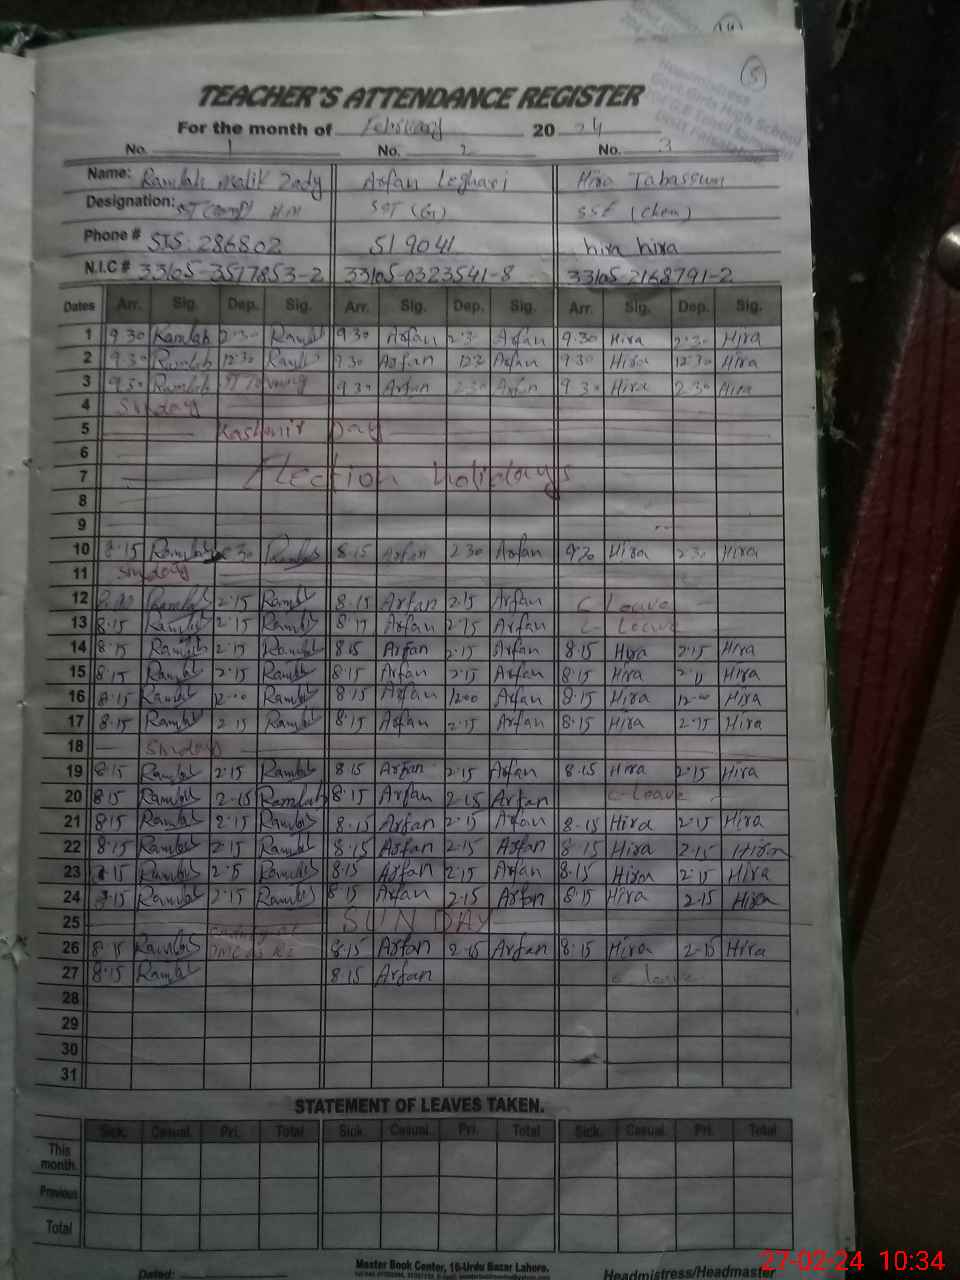 (S)
Headmistress
Govt. Girls High School
TEACHER'S ATTENDANCE REGISTER
For the month of February 20 24
No. 1 No. 2 No. 3
Name: Ramlah Malik Zady Arfan Leghari Hira Tabassum
Designation: HM SST (G) SSE (Chem)
Phone # STS: 286802 519041 hira hira
N.I.C # 33105-3517853-2 33105-0323541-8 33105-2168791-2
Dates Arr. Sig. Dep. Sig. Arr. Sig. Dep. Sig. Arr. Sig. Dep. Sig.
1 9.30 Ramlah 2.30 Ramlah 9.30 Arfan 2.30 Arfan 9.30 Hira 2.30 Hira
2 9.30 Ramlah 12.30 Ramlah 9.30 Arfan 12.30 Arfan 9.30 Hira 12.30 Hira
3 9.30 Ramlah 9.30 Arfan 2.30 Arfan 9.30 Hira 2.30 Hira
4 Sunday
5 Kashmir Day
6
7 Election Holidays
8
9
10 8.15 Ramlah 2.30 Ramlah 8.15 Arfan 2.30 Arfan 9.30 Hira 2.30 Hira
11 Sunday
12 Ramlah 2.15 Ramlah 8.15 Arfan 2.15 Arfan C-Leave
13 8.15 Ramlah 2.15 Ramlah 8.15 Arfan 2.15 Arfan C-Leave
14 8.15 Ramlah 2.15 Ramlah 8.15 Arfan 2.15 Arfan 8.15 Hira 2.15 Hira
15 8.15 Ramlah 2.15 Ramlah 8.15 Arfan 2.15 Arfan 8.15 Hira 2.15 Hira
16 8.15 Ramlah 12.00 Ramlah 8.15 Arfan 12.00 Arfan 8.15 Hira 12.00 Hira
17 8.15 Ramlah 2.15 Ramlah 8.15 Arfan 2.15 Arfan 8.15 Hira 2.15 Hira
18 Sunday
19 8.15 Ramlah 2.15 Ramlah 8.15 Arfan 2.15 Arfan 8.15 Hira 2.15 Hira
20 8.15 Ramlah 2.15 Ramlah 8.15 Arfan 2.15 Arfan C-Leave
21 8.15 Ramlah 2.15 Ramlah 8.15 Arfan 2.15 Arfan 8.15 Hira 2.15 Hira
22 8.15 Ramlah 2.15 Ramlah 8.15 Arfan 2.15 Arfan 8.15 Hira 2.15 Hira
23 8.15 Ramlah 2.15 Ramlah 8.15 Arfan 2.15 Arfan 8.15 Hira 2.15 Hira
24 8.15 Ramlah 2.15 Ramlah 8.15 Arfan 2.15 Arfan 8.15 Hira 2.15 Hira
25 SUNDAY
26 8.15 Ramlah 8.15 Arfan 2.15 Arfan 8.15 Hira 2.15 Hira
27 8.15 Ramlah 8.15 Arfan C leave
28
29
30
31
STATEMENT OF LEAVES TAKEN.
Sick. Casual. Pri. Total Sick. Casual. Pri. Total Sick. Casual. Pri. Total
This month.
Previous
Total
Dated: Master Book Center, 16-Urdu Bazar Lahore. Headmistress/Headmaster
27-02-24 10:34